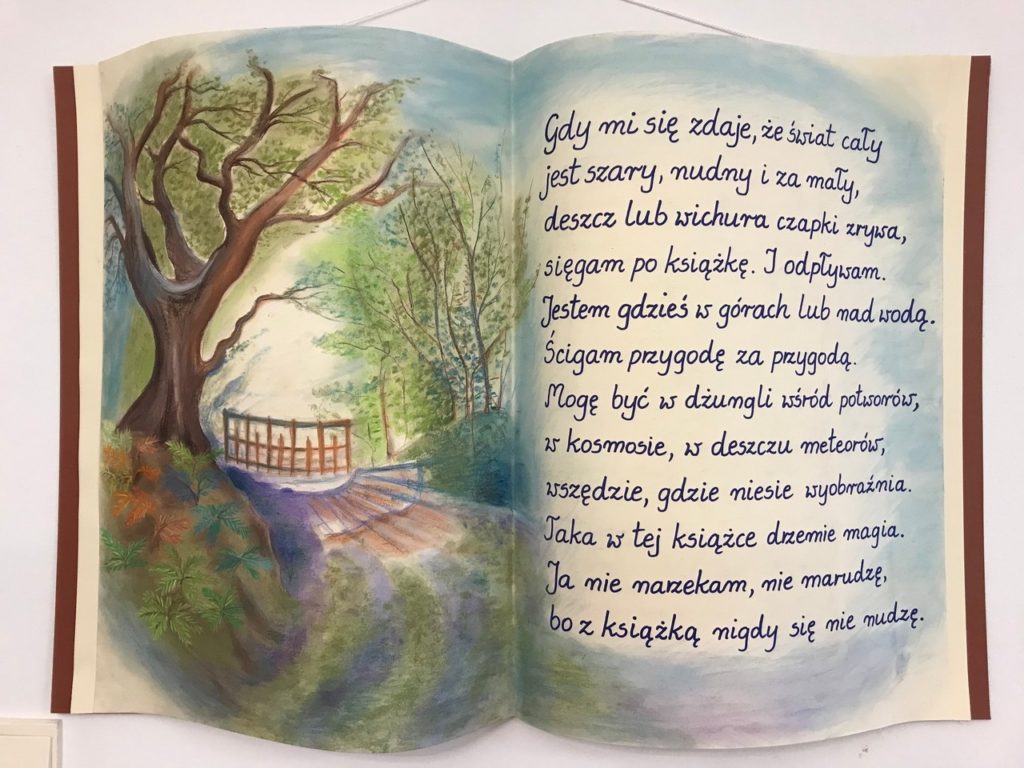 Gdy mi się zdaje, że świat cały
jest szary, nudny i za mały,
deszcz lub wichura czapki zrywa,
sięgam po książkę. I odpływam.
Jestem gdzieś w górach lub nad wodą.
Ścigam przygodę za przygodą.
Mogę być w dżungli wśród potworów,
w kosmosie, w deszczu meteorów,
wszędzie, gdzie niesie wyobraźnia.
Taka w tej książce drzemie magia.
Ja nie narzekam, nie marudzę,
bo z książką nigdy się nie nudzę.